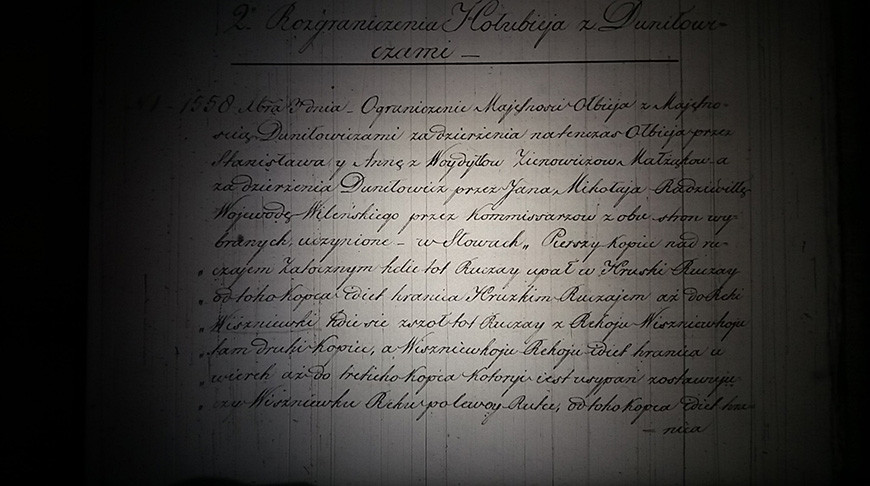 2. Rozgraniczenia Hołubieja z Duniłowi-
czami —
1558 Abra 3 dnia — Ograniczenie Majętności Ołbieja z Majętno-
scią Duniłowiczami za dzierżenia natenczas Ołbieja przez
Stanisława y Annę z Woydyłow Zienowizow Małżąkow a
za dzierżenia Duniłowicz przez Jana Mikołaja Radziwiłłę
Wojewodę Wileńskiego przez Kommissarzow z obu stron wy-
branych uczynione — w Słowach „ Pierszy kopiec nad ru-
„ czajem Zatocznym hdie tot Ruczay upał w Hruski Ruczay
„ od toho kopca idiet hranica Hruzkim Ruczajem aż do Reki
„ Wiszniewki hdie sie zszoł tot Ruczay z Rekoju Wiszniewkoju
„ tam druhi kopiec, a Wiszniewkoju Rekoju idiet hranica u
„ wierch aż do treticho kopca kotoryi iest usypan zostawuju
„ czy Wiszniewku Reku po lewoy Rutce, od toho kopca idiet hra-
— nica